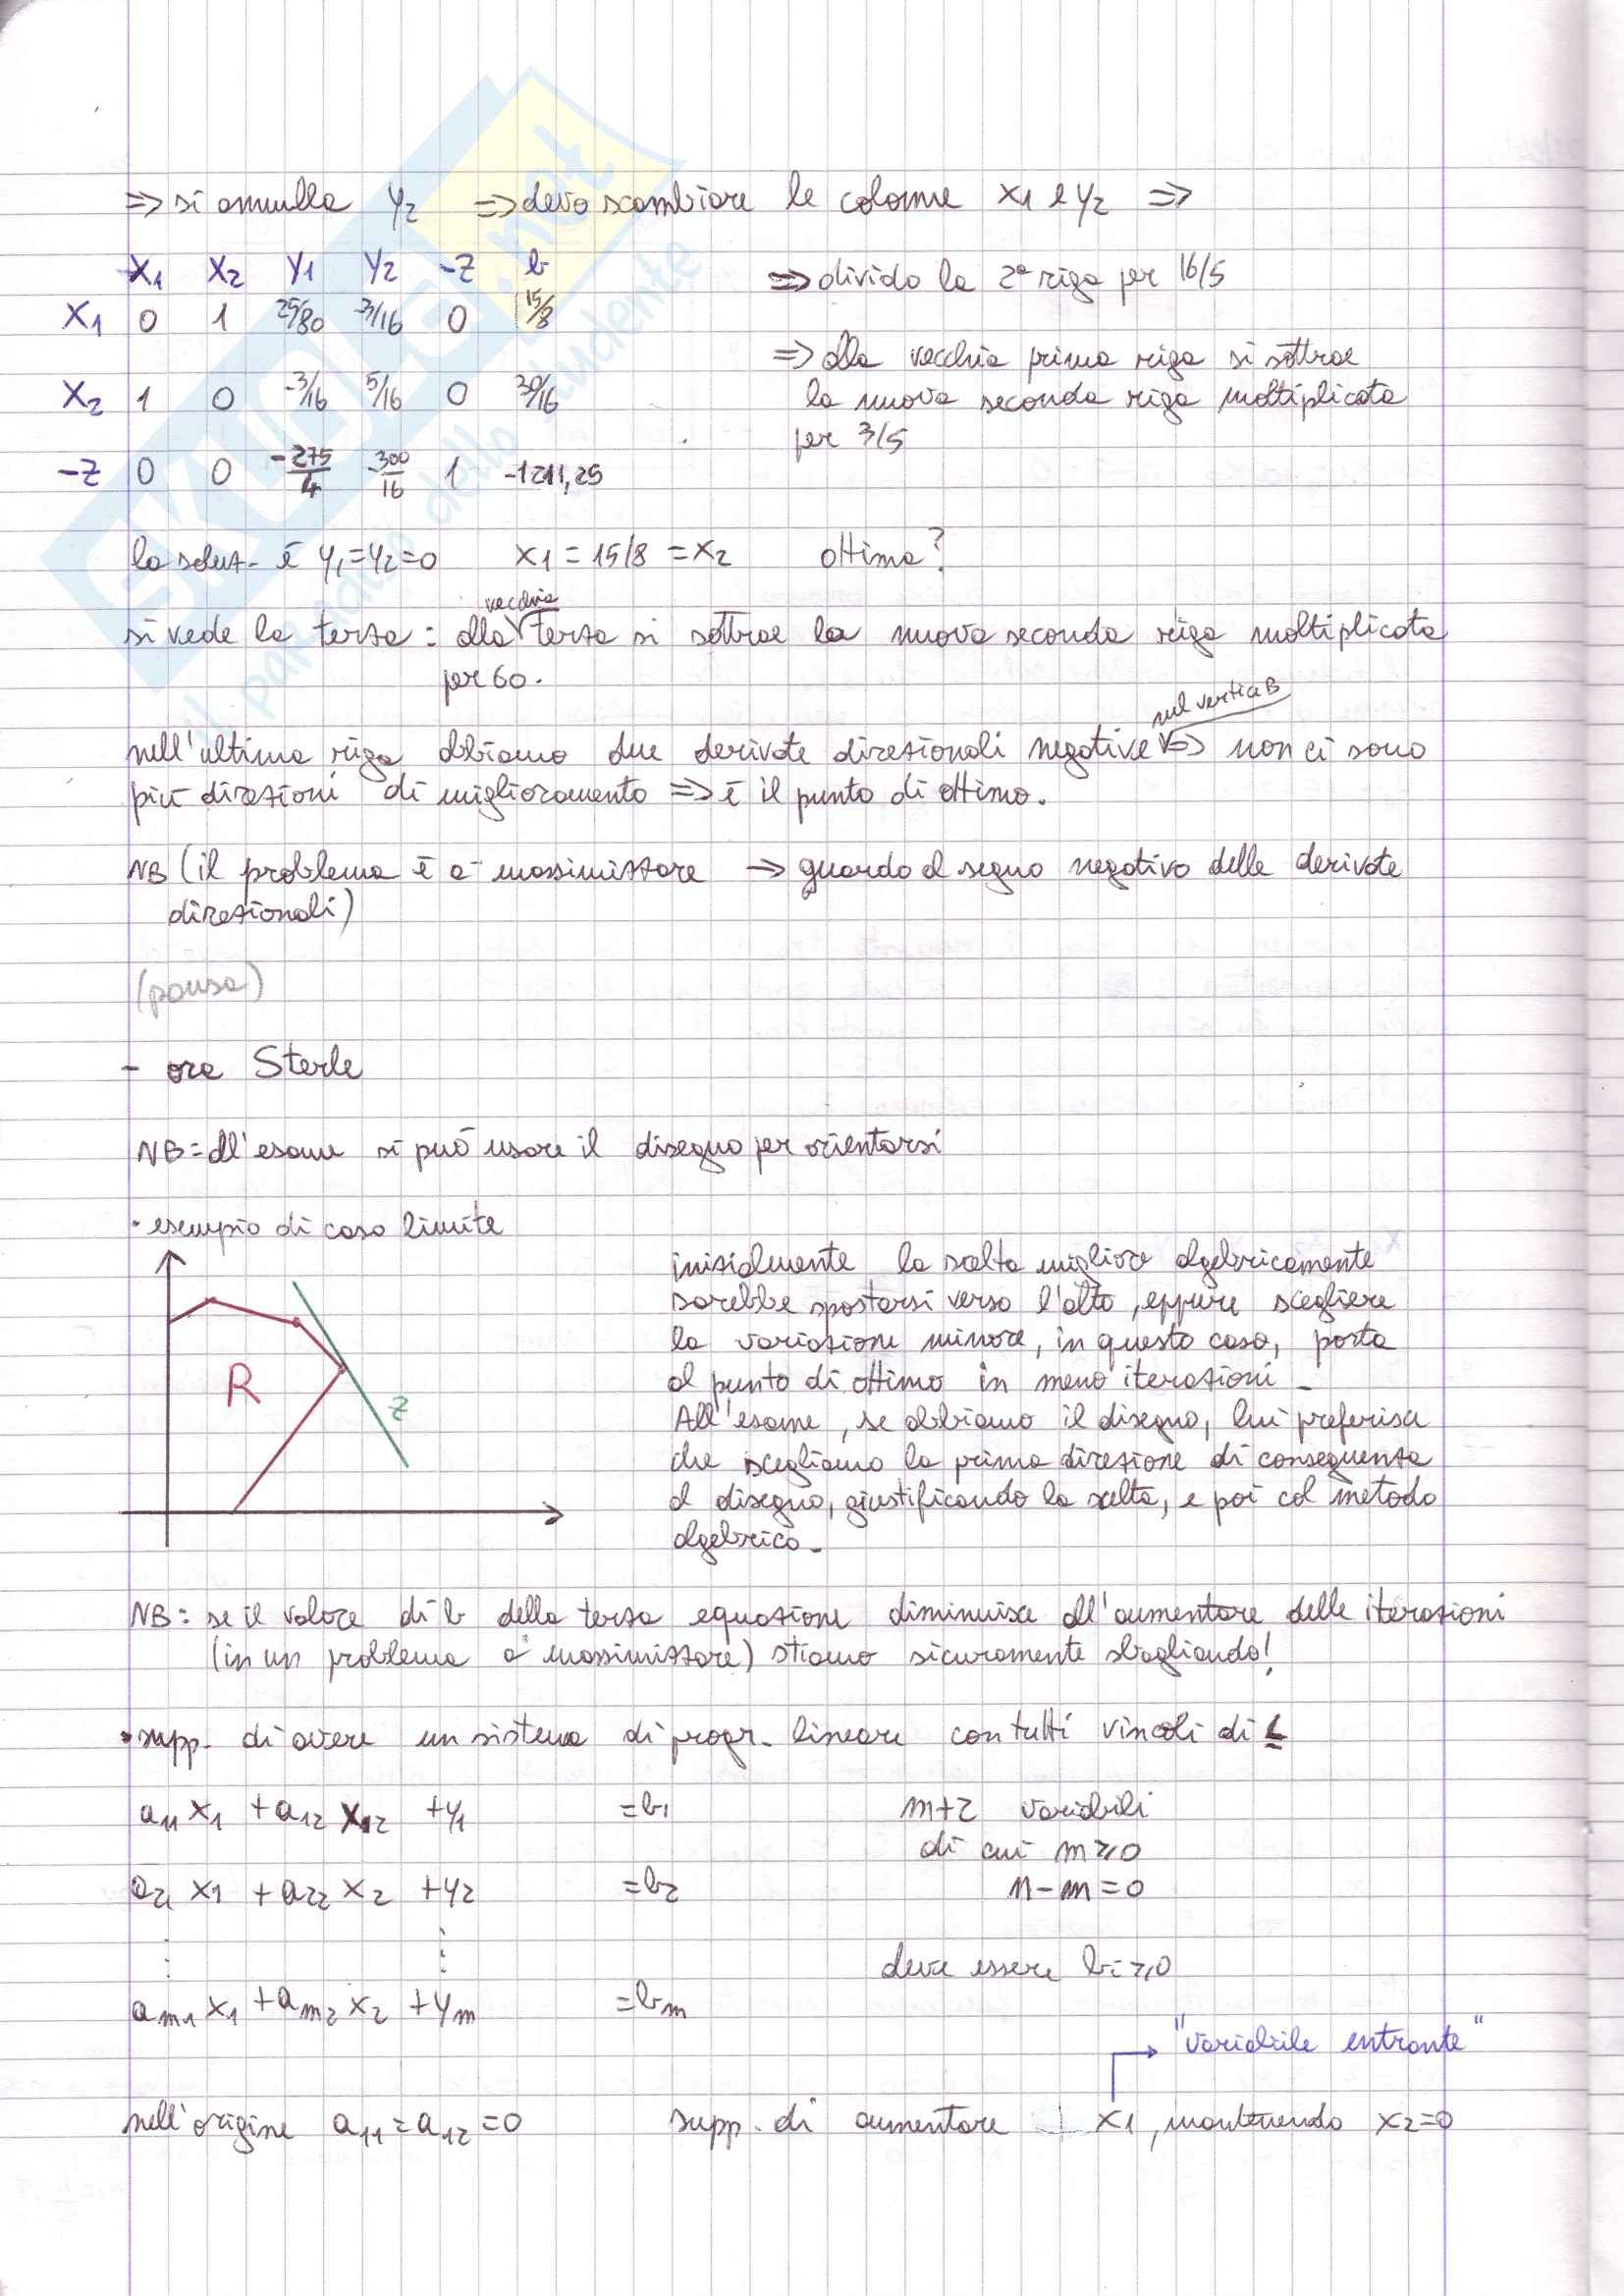 => si annulla y2 => devo scambiare le colonne x1 e y2 =>
X1 X2 Y1 Y2 -Z b
=> divido la 2ª riga per 16/5
X1 0 1 25/80 3/16 0 15/8
=> alla vecchia prima riga si sottrae
X2 1 0 -3/16 5/16 0 30/16
la nuova seconda riga moltiplicata
per 3/5
-Z 0 0 -275/4 -300/16 1 -1211,25
la soluz. è y1=y2=0 x1 = 15/8 = x2 ottima?
vecchia
si vede la terza: alla terza si sottrae la nuova seconda riga moltiplicata
per 60.
nel vertice B
nell'ultima riga abbiamo due derivate direzionali negative => non ci sono
più direzioni di miglioramento => è il punto di ottimo.
NB (il problema è a massimizzare -> guardo al segno negativo delle derivate
direzionali)
(pausa)
- ora Sterle
NB = all'esame si può usare il disegno per orientarsi
• esempio di caso limite
R
z
inizialmente la scelta migliore algebricamente
sarebbe spostarsi verso l'alto, eppure scegliere
la variazione minore, in questo caso, porta
al punto di ottimo in meno iterazioni.
All'esame, se abbiamo il disegno, lui preferisce
che scegliamo la prima direzione di conseguenza
al disegno, giustificando la scelta, e poi col metodo
algebrico.
NB: se il valore di b della terza equazione diminuisce all'aumentare delle iterazioni
(in un problema a massimizzare) stiamo sicuramente sbagliando!
• supp. di avere un sistema di progr. lineare con tutti vincoli di ≤
a11 x1 + a12 x2 + y1 = b1
m+2 variabili
di cui m ≥ 0
a21 x1 + a22 x2 + y2 = b2
n-m = 0
deve essere bi ≥ 0
am1 x1 + am2 x2 + ym = bm
"variabile entrante"
nell'origine a11 = a12 = 0 supp. di aumentare x1, mantenendo x2=0
SKUOLA.net
il paradiso dello studente